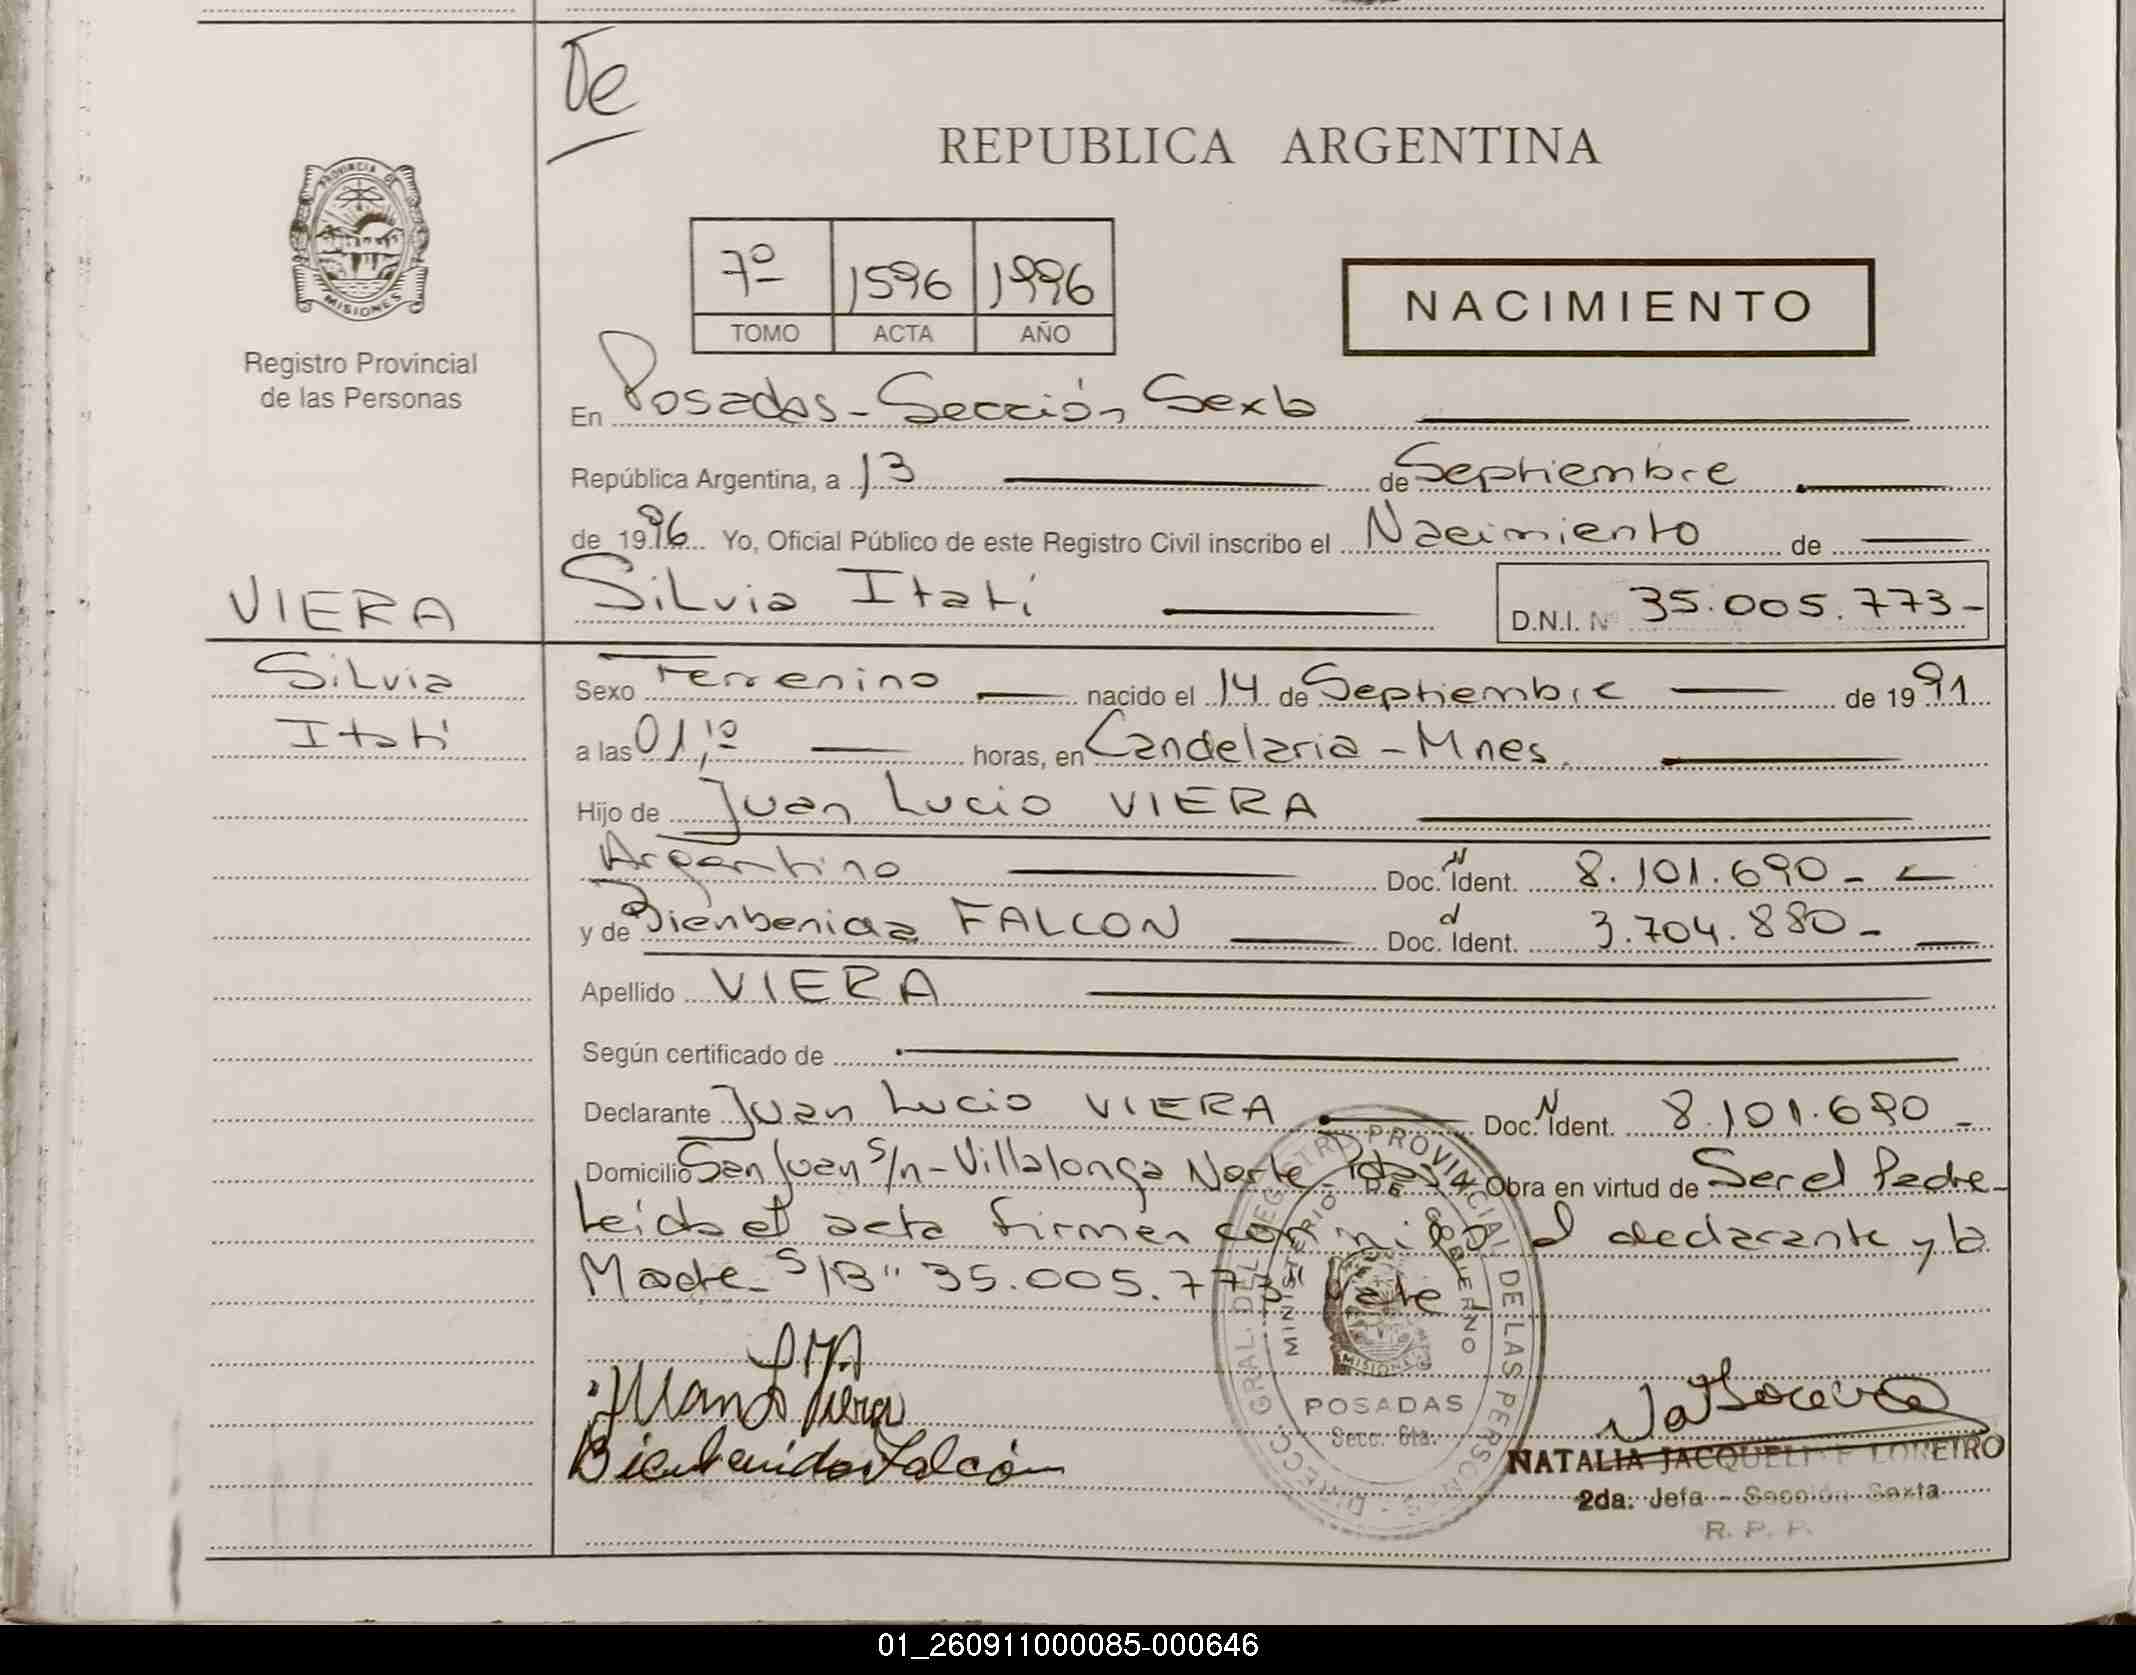 De
REPUBLICA ARGENTINA
PROVINCIA DE
MISIONES
7º 1596 1996
TOMO ACTA AÑO
NACIMIENTO
Registro Provincial
de las Personas
En Posadas - Sección Sexta
República Argentina, a 13 de Septiembre
de 1996 Yo, Oficial Público de este Registro Civil inscribo el Nacimiento de
VIERA Silvia Itatí D.N.I. Nº 35.005.773-
Silvia Sexo Femenino nacido el 14 de Septiembre de 1991
Itatí a las 01,10 horas, en Candelaria - Mnes.
Hijo de Juan Lucio VIERA
Argentino Doc. Ident. 8.101.690-
y de Bienbenida FALCON Doc. Ident. 3.704.880-
Apellido VIERA
Según certificado de
Declarante Juan Lucio VIERA Doc. Ident. 8.101.690-
Domicilio San Juan s/n - Villalonga Norte - Pdas Obra en virtud de Ser el Padre-
Leída el acta firman conmigo el declarante y la
Madre S/B" 35.005.773" Vale
Juan L Viera
Bienbenida Falcón
DIRECC. GRAL. DEL REGISTRO PROVINCIAL DE LAS PERSONAS
MINISTERIO DE GOBIERNO
MISIONES
POSADAS
Secc. 6ta.
NATALIA JACQUELINE LOREIRO
2da. Jefa - Sección Sexta
R. P. P.
01_260911000085-000646